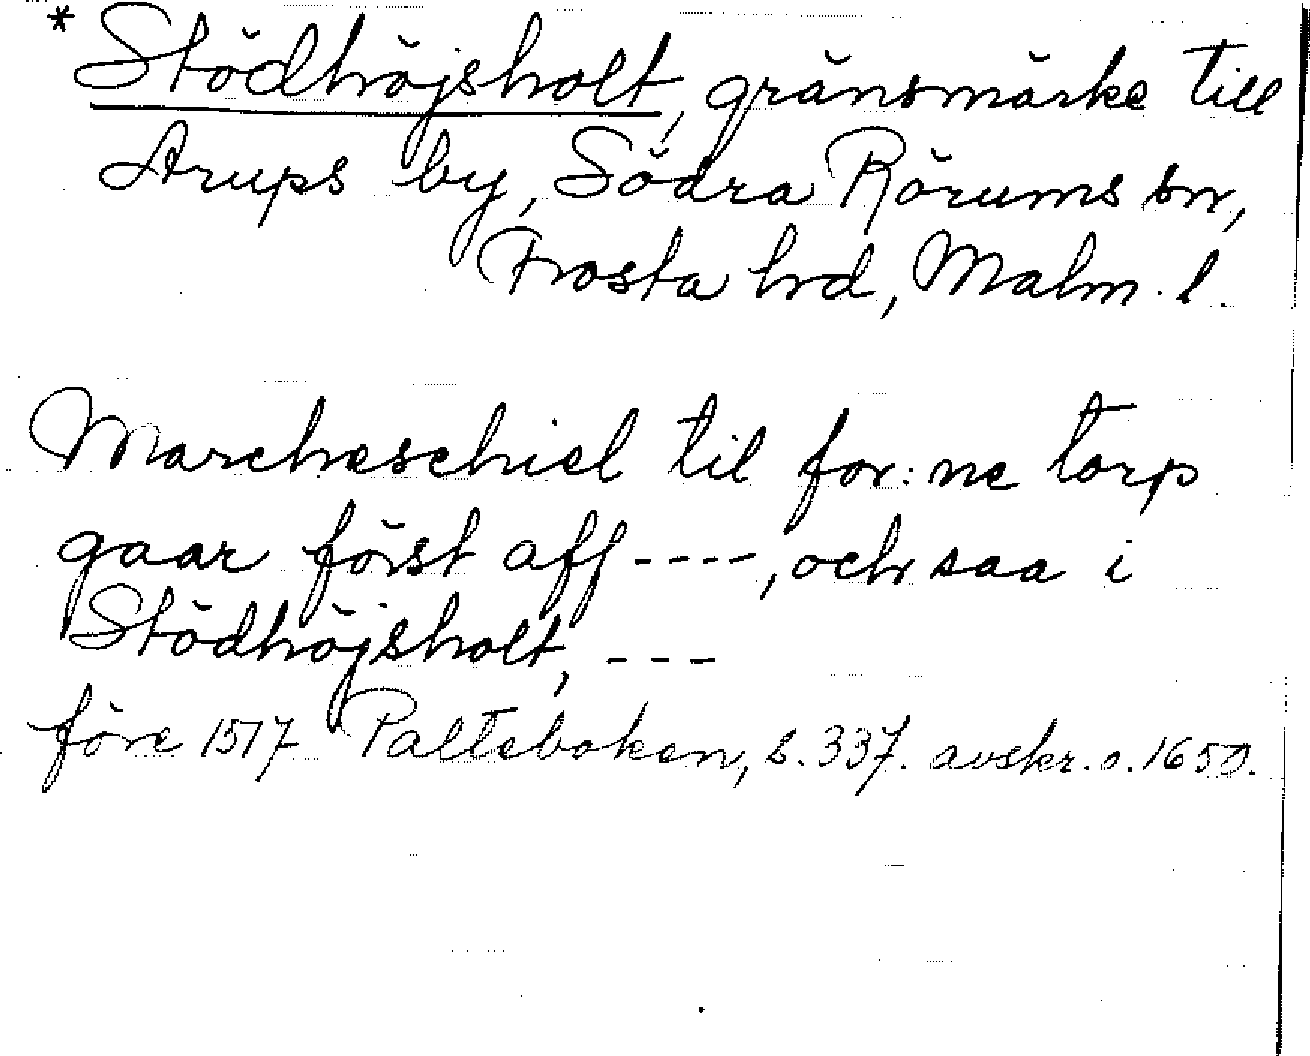 * Stödhöjsholt, gränsmärke till
Arups by, Södra Rörums sn,
Frosta hrd, Malm. l.
Marcheschiel til for: ne torp
gaar först aff ----, och saa i
Stödhöjsholt, ---
före 1517 Palteboken, s. 337. avskr. o. 1650.